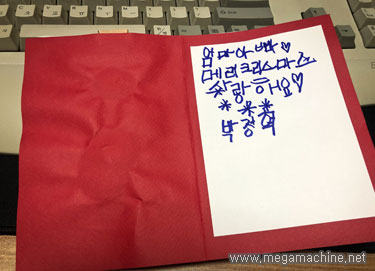 엄마아빠♡
메리크리스마스
사랑해요♡
***
박정혁
www.megamachine.net